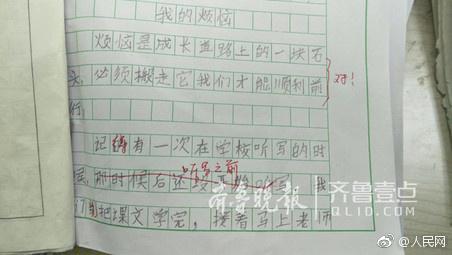 我的烦恼
烦恼是成长道路上的一块石
头，必须搬走它我们才能顺利前
对！
行。
记得有一次在学校听写的时
听写之前
候，那时候后还没开始听写，我
们把课文学完，接着马上老师
齐鲁晚报 齐鲁壹点
QLID.COM
@人民网